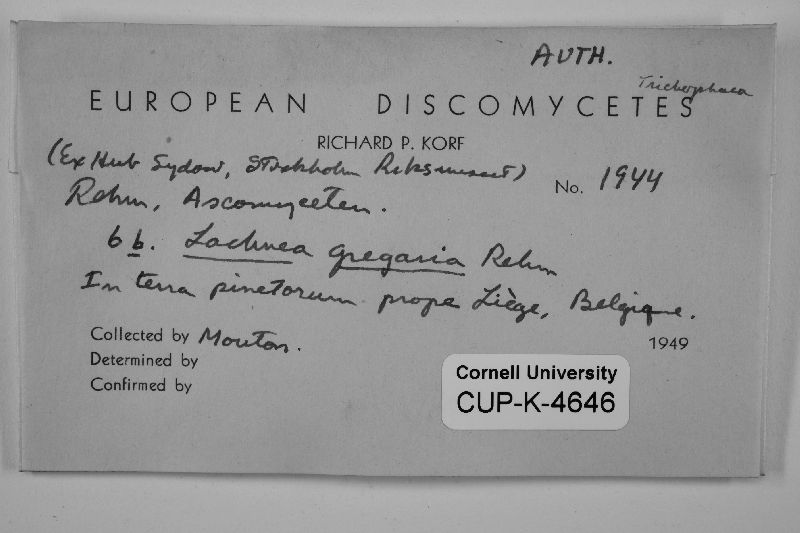 AUTH.
Trichophaea
EUROPEAN DISCOMYCETES
RICHARD P. KORF
(Ex Herb Sydow, Stockholm Riksmuseet)
No. 1944
Rehm, Ascomyceten.
6b. Lachnea gregaria Rehm
In terra pinetorum prope Liège, Belgique.
Collected by Mouton.
1949
Determined by
Confirmed by
Cornell University
CUP-K-4646